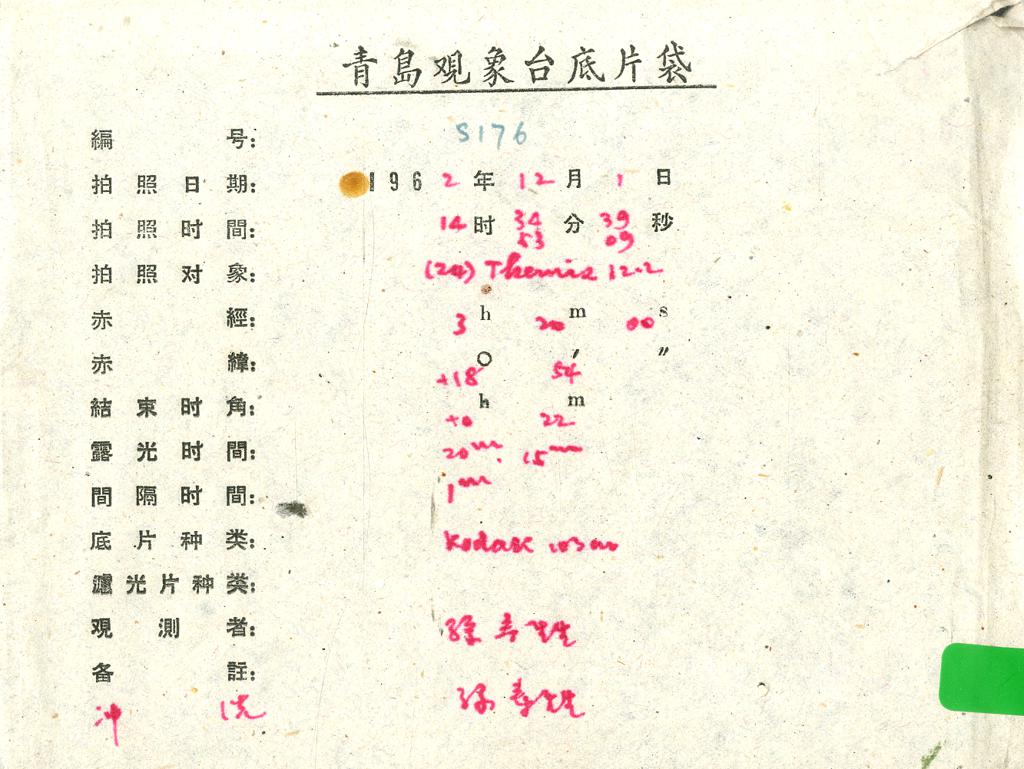 青島观象台底片袋
編号: S176
拍照日期: 1962年12月1日
拍照时間: 14时34分39秒
53 09
拍照对象: (24) Themis 12.2
赤經: 3h 20m 00s
赤緯: +18° 54′ ″
結束时角: +0h 22m
露光时間: 20m. 15m
間隔时間: 1m
底片种类: Kodak 103a
濾光片种类:
观測者:
备註:
冲洗